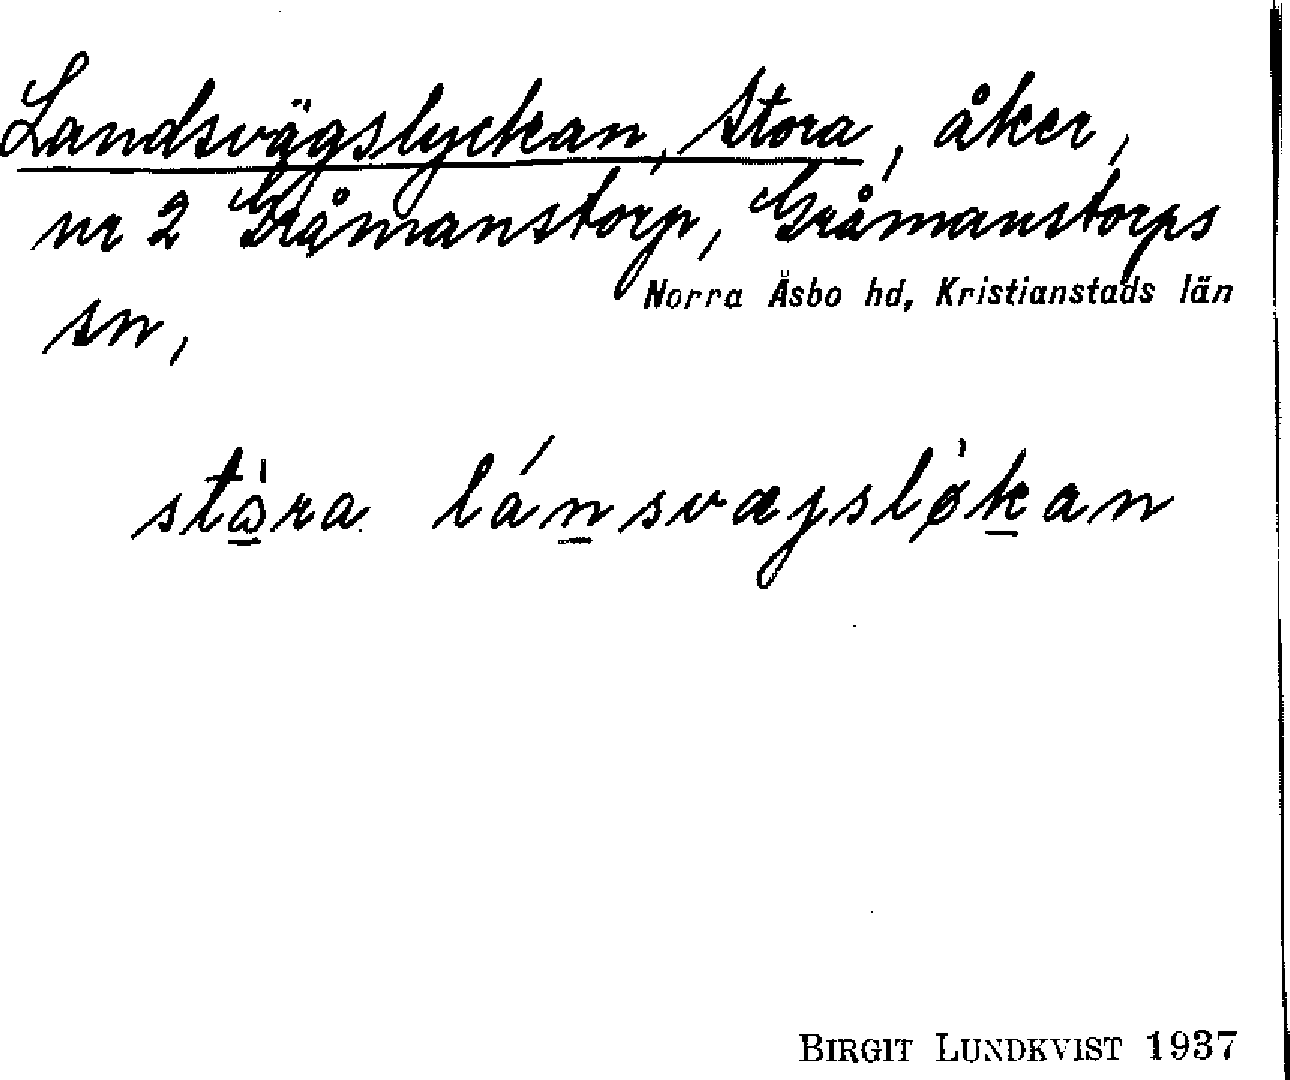 Landsvägslyckan, Stora, åker,
nr 2 Gråmanstorp, Gråmanstorps
Norra Åsbo hd, Kristianstads län
sn,
stòra lánsvægsløkan
BIRGIT LUNDKVIST 1937